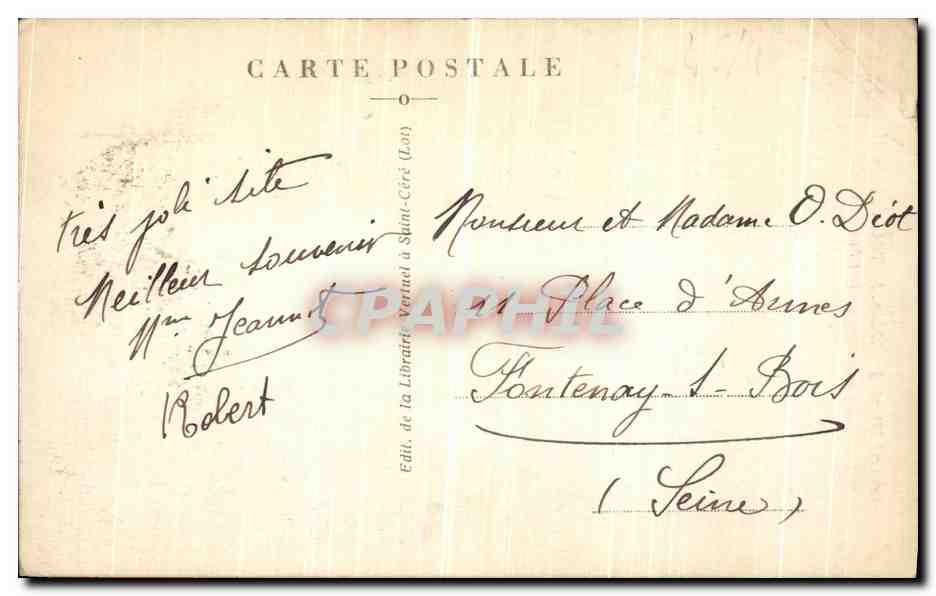 CARTE POSTALE
très joli site
Meilleur souvenir
Mme
Robert
Edit. de la Librairie Vertuel à Saint-Céré (Lot)
Monsieur et Madame O. Déot
11 Place d'Armes
Fontenay-s-Bois
(Seine)
CPAPHIL